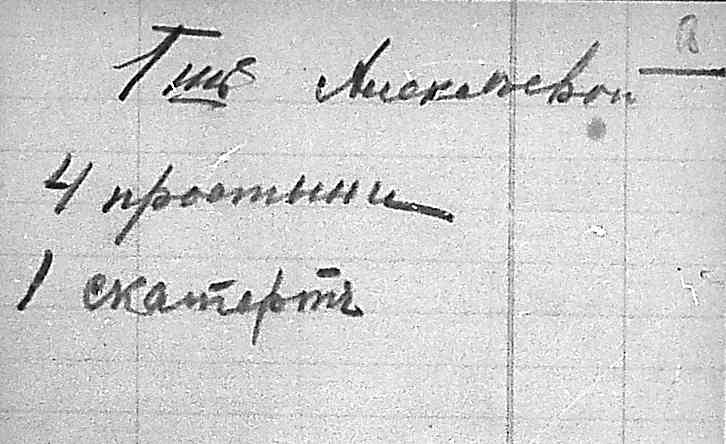 Г-жѣ Алексѣевой
4 простыни
1 скатерть